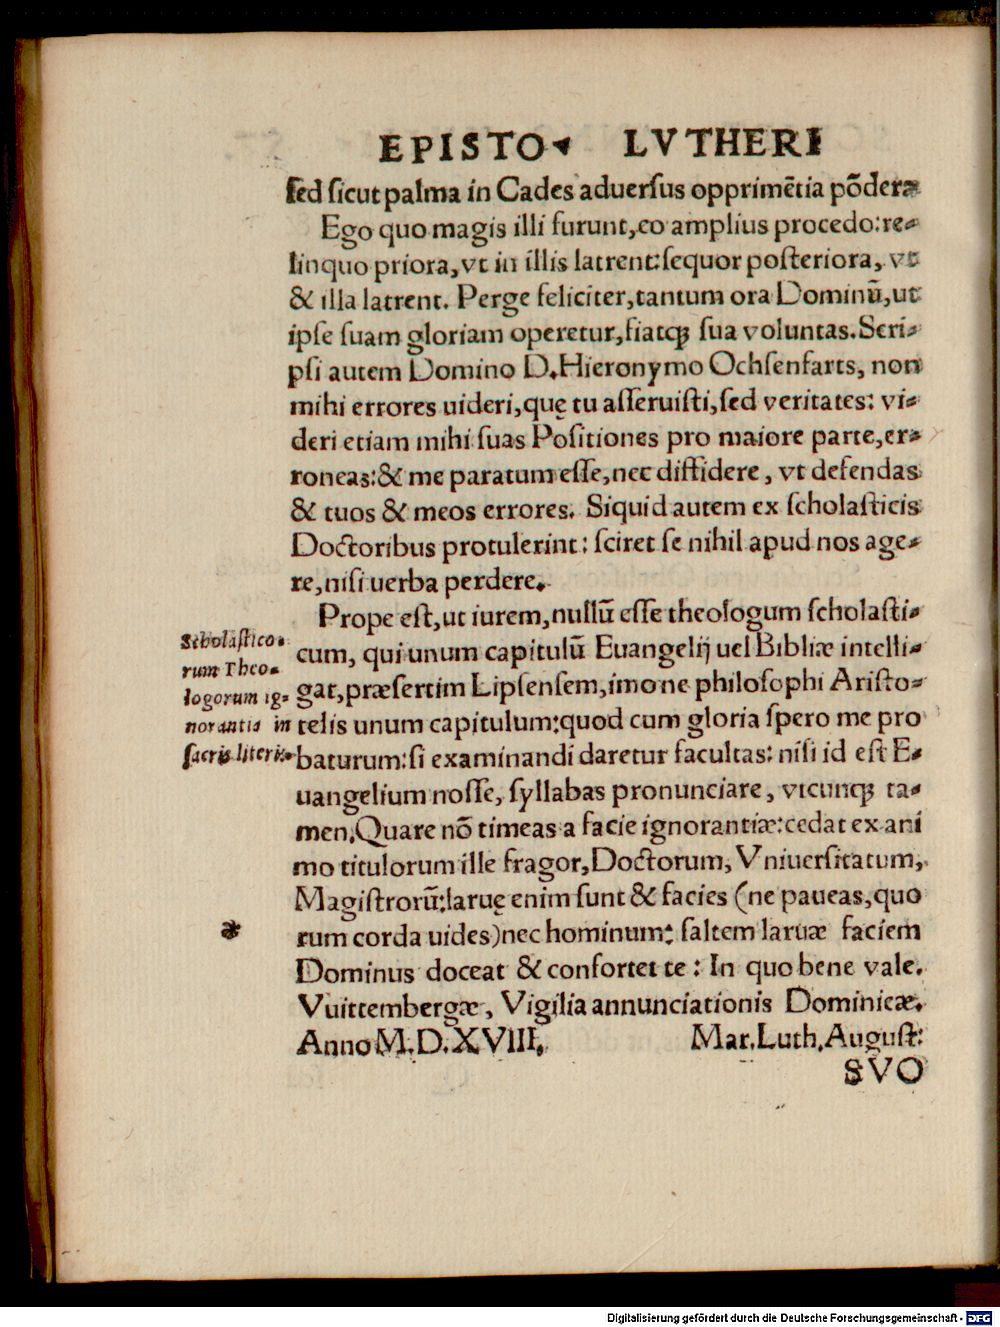 EPISTO⸗ LVTHERI
ſed ſicut palma in Cades aduerſus opprimētia pōdera
Ego quo magis illi furunt,eo amplius procedo:re⸗
linquo priora,vt in illis latrent:ſequor poſteriora, vt
& illa latrent. Perge feliciter,tantum ora Dominū,ut
ipſe ſuam gloriam operetur,fiatq; ſua voluntas.Scri⸗
pſi autem Domino D.Hieronymo Ochſenfarts, non
mihi errores uideri,quę tu aſſeruiſti,ſed veritates: vi⸗
deri etiam mihi ſuas Poſitiones pro maiore parte,er⸗
roneas:& me paratum eſſe,nec diffidere, vt defendas
& tuos & meos errores. Siquid autem ex ſcholaſticis
Doctoribus protulerint: ſciret ſe nihil apud nos age⸗
re,niſi uerba perdere.
Prope eſt,ut iurem,nullū eſſe theologum ſcholaſti⸗
cum, qui unum capitulū Euangelij uel Bibliæ intelli⸗
gat,præſertim Lipſenſem,imo ne philoſophi Ariſto⸗
telis unum capitulum:quod cum gloria ſpero me pro
baturum:ſi examinandi daretur facultas: niſi id eſt E⸗
uangelium noſſe, ſyllabas pronunciare, vtcunq; ta⸗
men.Quare nō timeas a facie ignorantiæ:cedat ex ani
mo titulorum ille fragor,Doctorum, Vniuerſitatum,
Magiſtrorū:laruę enim ſunt & facies (ne paueas,quo
rum corda uides)nec hominum: ſaltem laruæ faciem
Dominus doceat & confortet te: In quo bene vale.
Vuittembergæ, Vigilia annunciationis Dominicæ.
Anno M.D.XVIII. Mar.Luth.Auguſt:
SVO
Scholaſtico⸗
rum Theo⸗
logorum ig⸗
norantia in
ſacris literis.
❧
Digitalisierung gefördert durch die Deutsche Forschungsgemeinschaft - DFG